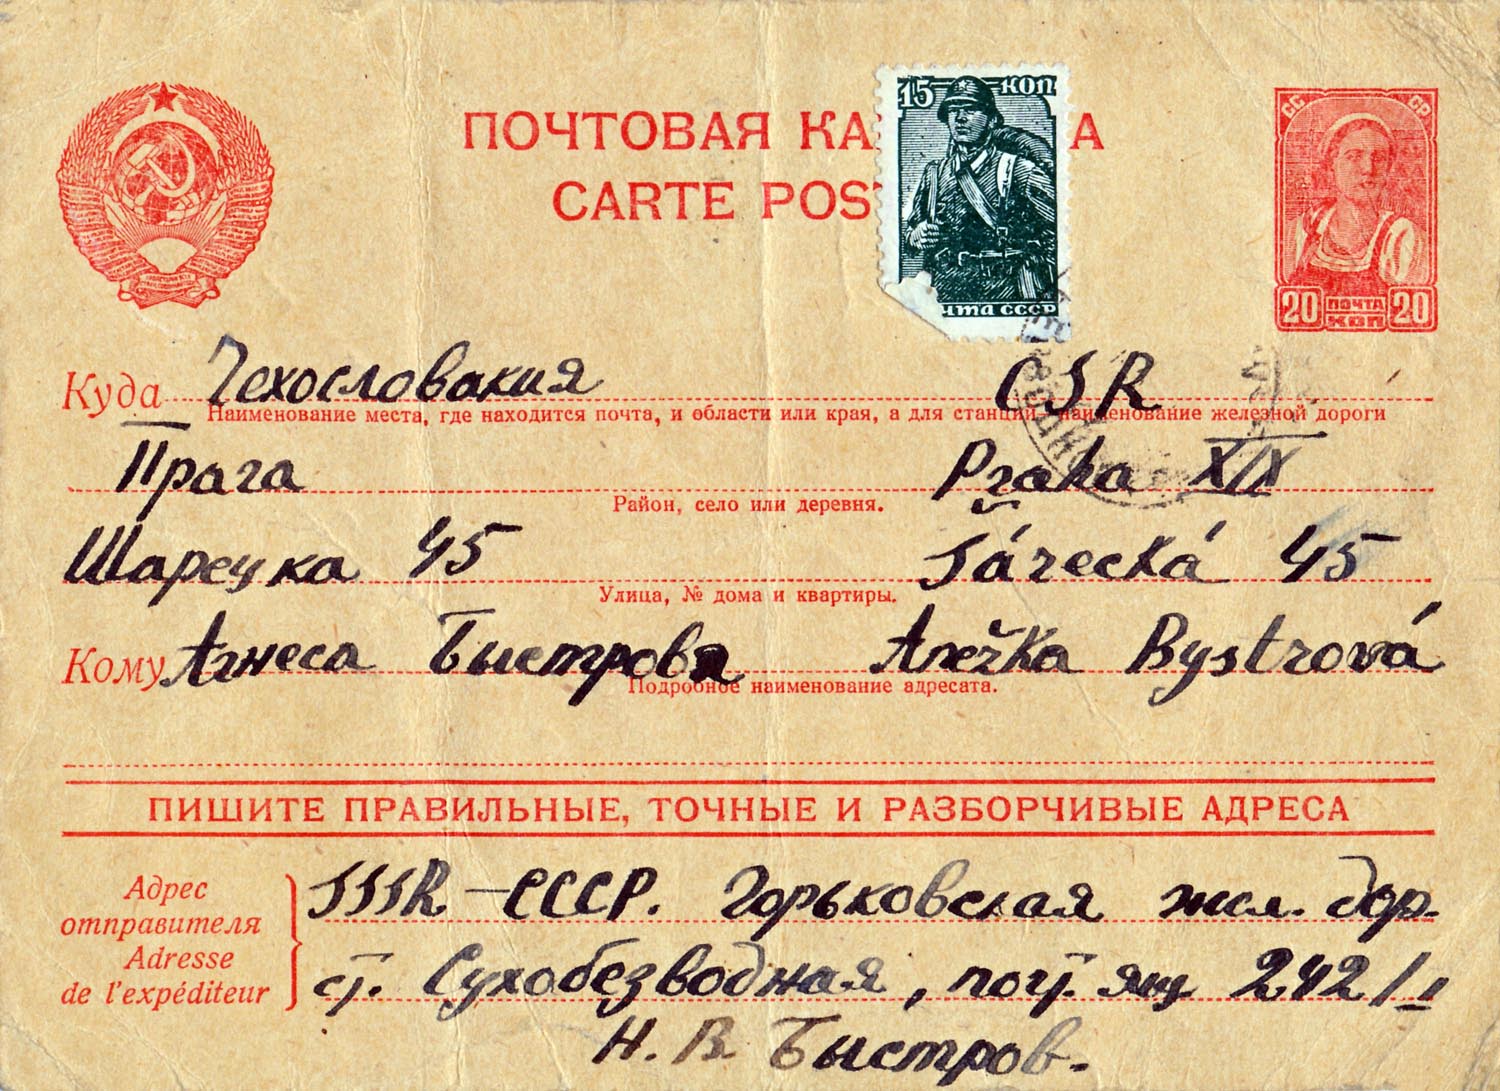 ПОЧТОВАЯ КА А
CARTE POS
15 КОП
чта СССР
СС СР
20 ПОЧТА 20
КОП
Куда Чехословакия CSR
Наименование места, где находится почта, и области или края, а для станций наименование железной дороги
Прага Praha XIX
Район, село или деревня.
Шарецка 45 Šárecká 45
Улица, № дома и квартиры.
Кому Агнеса Быстрова Anežka Bystrová
Подробное наименование адресата.
ПИШИТЕ ПРАВИЛЬНЫЕ, ТОЧНЫЕ И РАЗБОРЧИВЫЕ АДРЕСА
Адрес отправителя
Adresse de l'expéditeur
SSSR — СССР. Горьковская жел. дор.
ст. Сухобезводная, почт. ящ. 242/II
Н. В. Быстров.